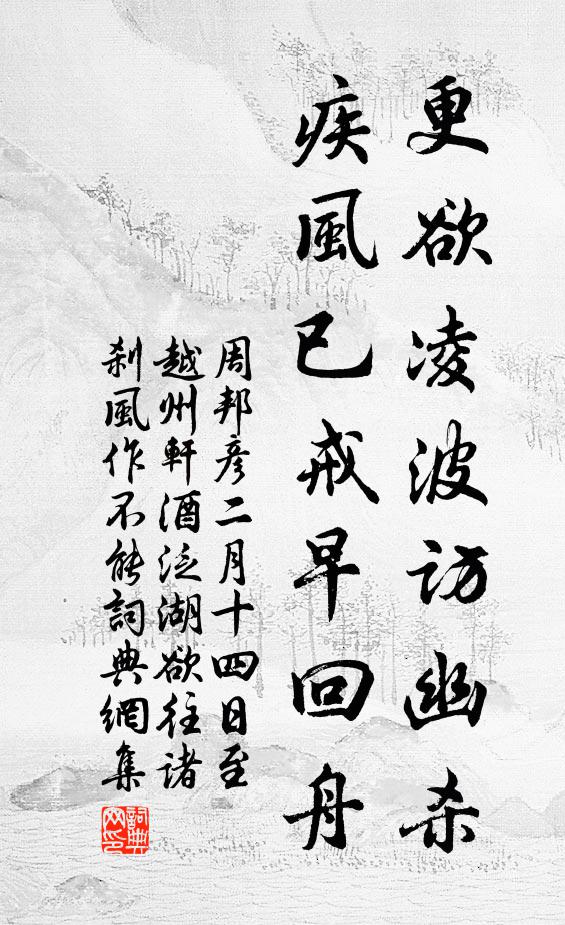 更欲凌波訪幽杀
疾風已戒早回舟
周邦彥二月十四日至
越州軒酒泛湖欲往諸
刹風作不能詞典網集
詞典
网印